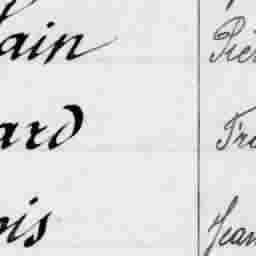 ain Pie
ard Fra
ois Jean